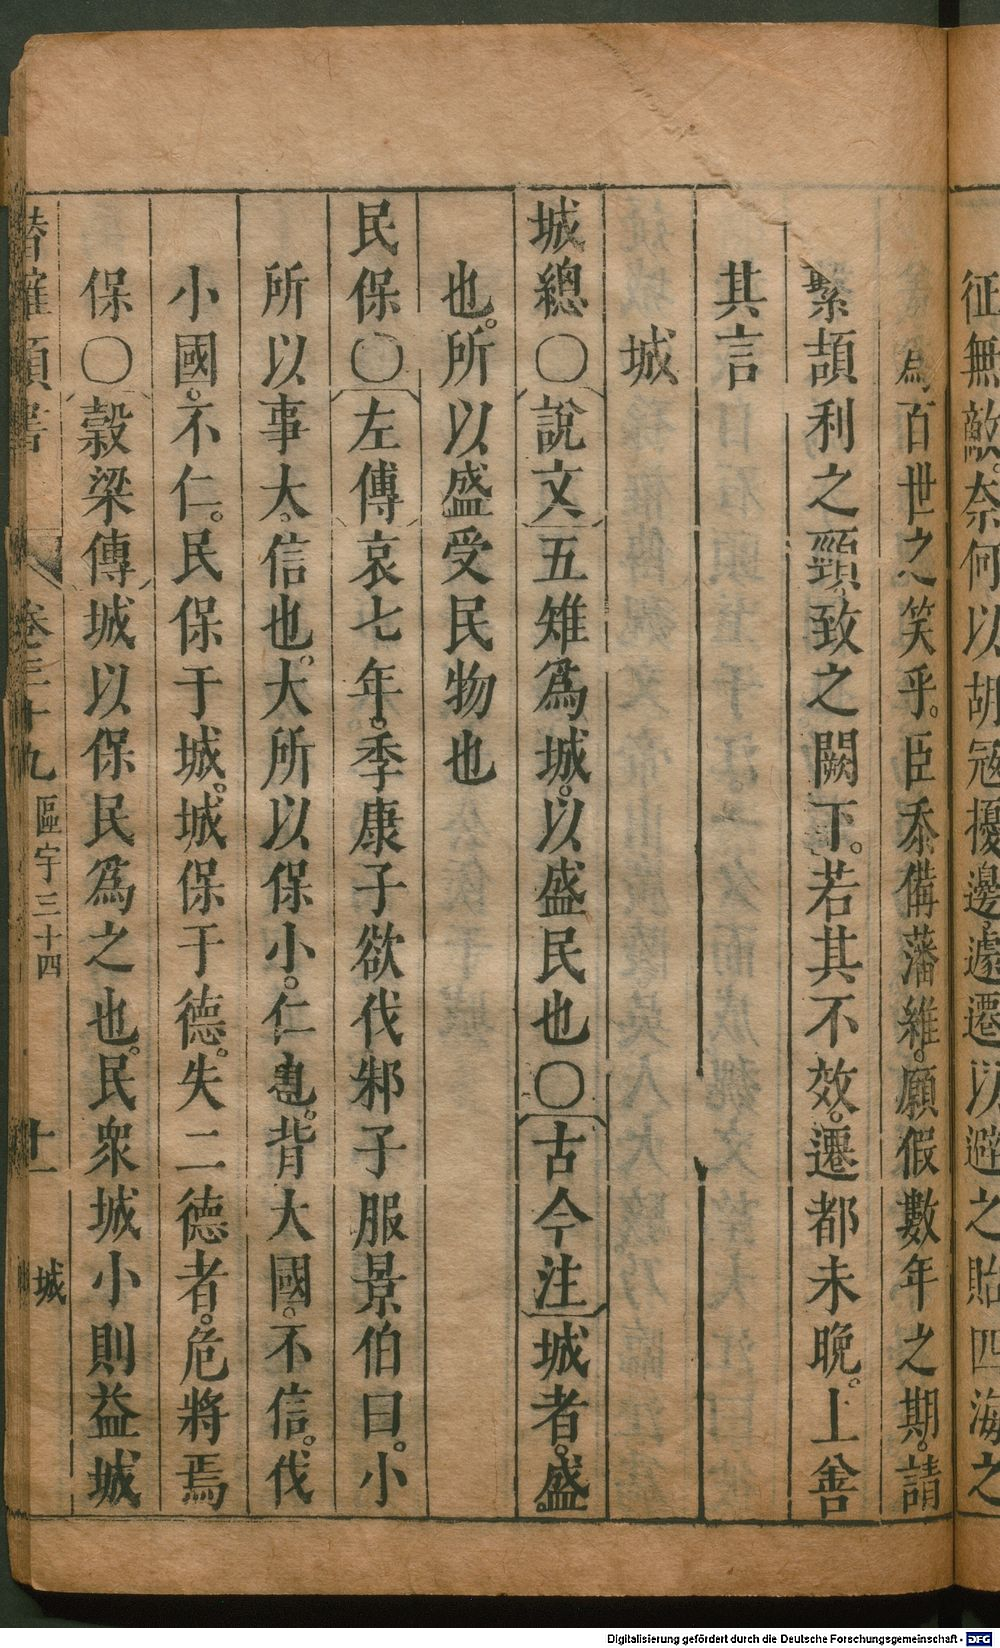 征無敵。奈何以胡寇擾邊。遽遷以避之貽四海之
為百世之笑乎。臣忝備藩維。願假數年之期。請
繫頡利之頸。致之闕下。若其不效。遷都未晚。上善
其言
城
城總〇說文五雉爲城。以盛民也〇古今注城者。盛
也。所以盛受民物也
民保〇左傳哀七年。季康子欲伐邾子服景伯曰。小
所以事大。信也。大所以保小。仁也。背大國。不信。伐
小國。不仁。民保于城。城保于德。失二德者。危將焉
保〇榖梁傳城以保民爲之也。民衆城小則益城
潛確類書 卷三十九 區宇三十四 十一 城
Digitalisierung gefördert durch die Deutsche Forschungsgemeinschaft - DFG